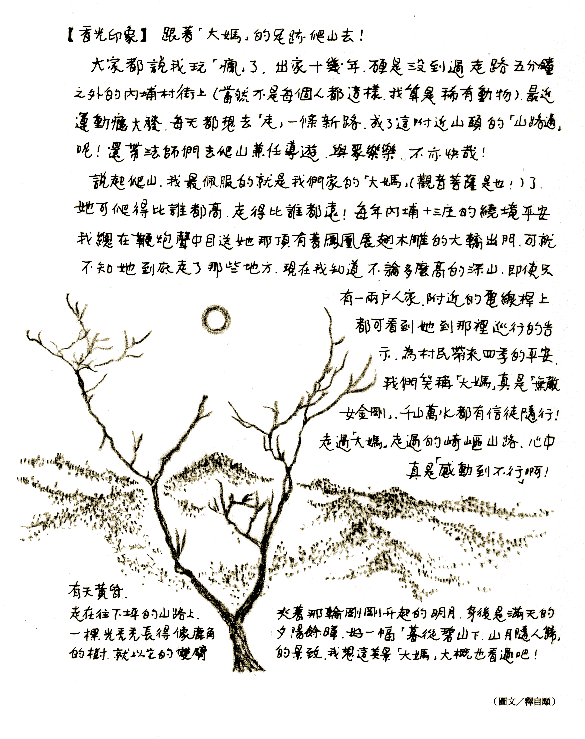 【香光印象】 跟著「大媽」的足跡爬山去！
大家都說我玩「瘋」了，出家十幾年，硬是沒到過走路五分鐘
之外的內埔村街上（當然不是每個人都這樣，我算是稀有動物），最近
運動癮大發，每天都想去「走」一條新路，成了這附近山頭的「山路通」
呢！還帶法師們去爬山兼任導遊，與眾樂樂，不亦快哉！
說起爬山，我最佩服的就是我們家的「大媽」（觀音菩薩是也！）了，
她可爬得比誰都高，走得比誰都遠！每年內埔十三庄的繞境平安
我總在鞭炮聲中目送她那頂有著鳳凰展翅木雕的大輪出門，可就
不知她到底走了那些地方，現在我知道不論多麼高的深山，即使只
有一兩戶人家，附近的電線桿上
都可看到她到那裡巡行的告
示，為村民帶來四季的平安。
我們笑稱「大媽」真是「無敵
女金剛」，千山萬水都有信徒隨行！
走過「大媽」走過的崎嶇山路，心中
真是「感動到不行」啊！
有天黃昏，
走在往下坪的山路上，
一棵光禿禿長得像鹿角
的樹，就以它的雙臂
夾著那輪剛剛升起的明月，身後是滿天的
夕陽餘暉，好一幅「暮從碧山下，山月隨人歸」
的景致，我想這美景「大媽」大概也看過吧！
（圖文／釋自顒）